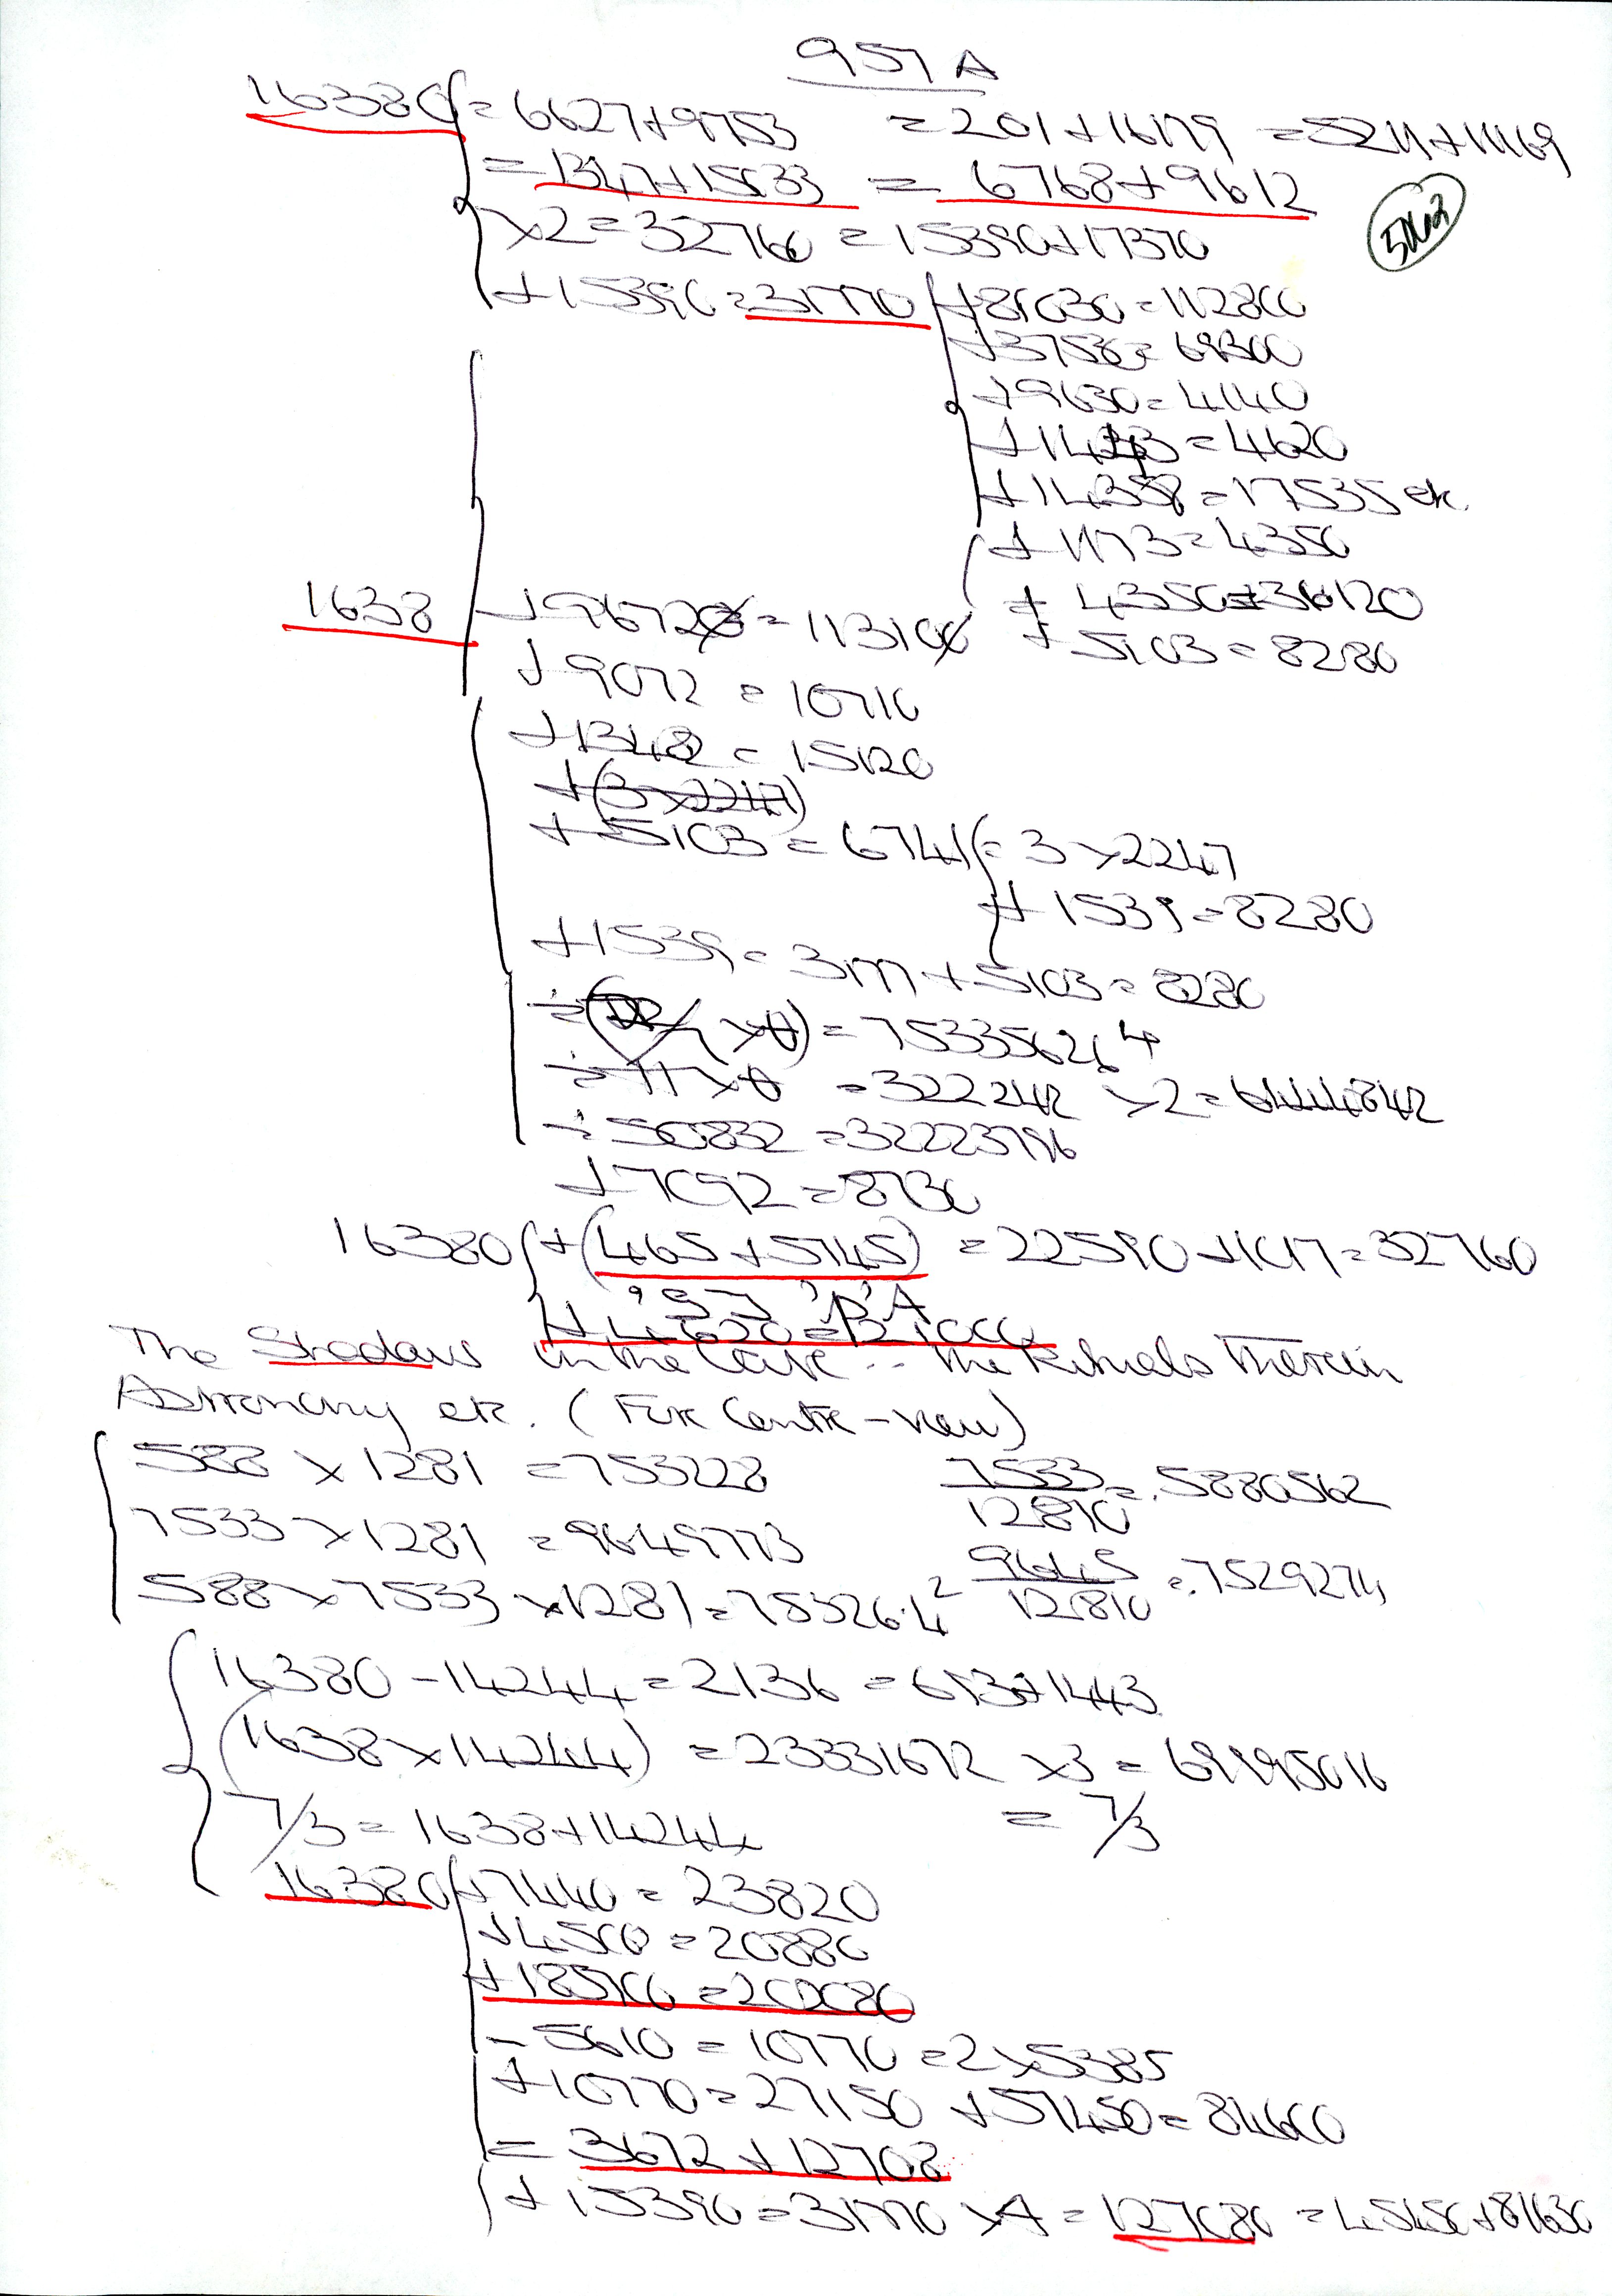 957 A
16380 = 6627+9753 = 201+16179 = 5211+11169
= 1347+15033 = 6768+9612
×2 = 32760 = 15390+17370
+15390 = 31770 +81030 = 112800
+37530 = 69300
+9630 = 4140
= 4620
+14358 = 17535 etc.
+1173 = 4350
1638 +96720 = 113100 + 4350 = 36120
+ 5103 = 8280
+9072 = 10710
+13482 = 15120
+(3×2247)
+5103 = 6741 (= 3×2247
+ 1539 = 8280
+1539 = 3177 + 5103 = 8280
= 322242 ×2 = 644484
÷ 50832 = 32223796
+7092 = 8730
16380 + (465+5745) = 22590 + 1017 = 32760
+ 4620 = 21000
The Shadows in the Cave .. The Rituals Therein
Astronomy etc. (For Centre-view)
588 × 1281 = 753228 7533/12810 = .5880562
7533 × 1281 = 9649773
588 × 7533 × 1281 = 75326.4² 9645/12810 = .7529274
16380 - 14244 = 2136 = 693+1443
(1638 × 14244) = 23331672 ×3 = 69995016
7/3 = 1638+14244 = 7/3
16380 +7440 = 23820
+4500 = 20880
+185700 = 202080
- 5610 = 10770 = 2×5385
+10770 = 27150 +57450 = 84600
= 3672 + 12708
+ 15390 = 31770 ×4 = 127080 = 45450+81630